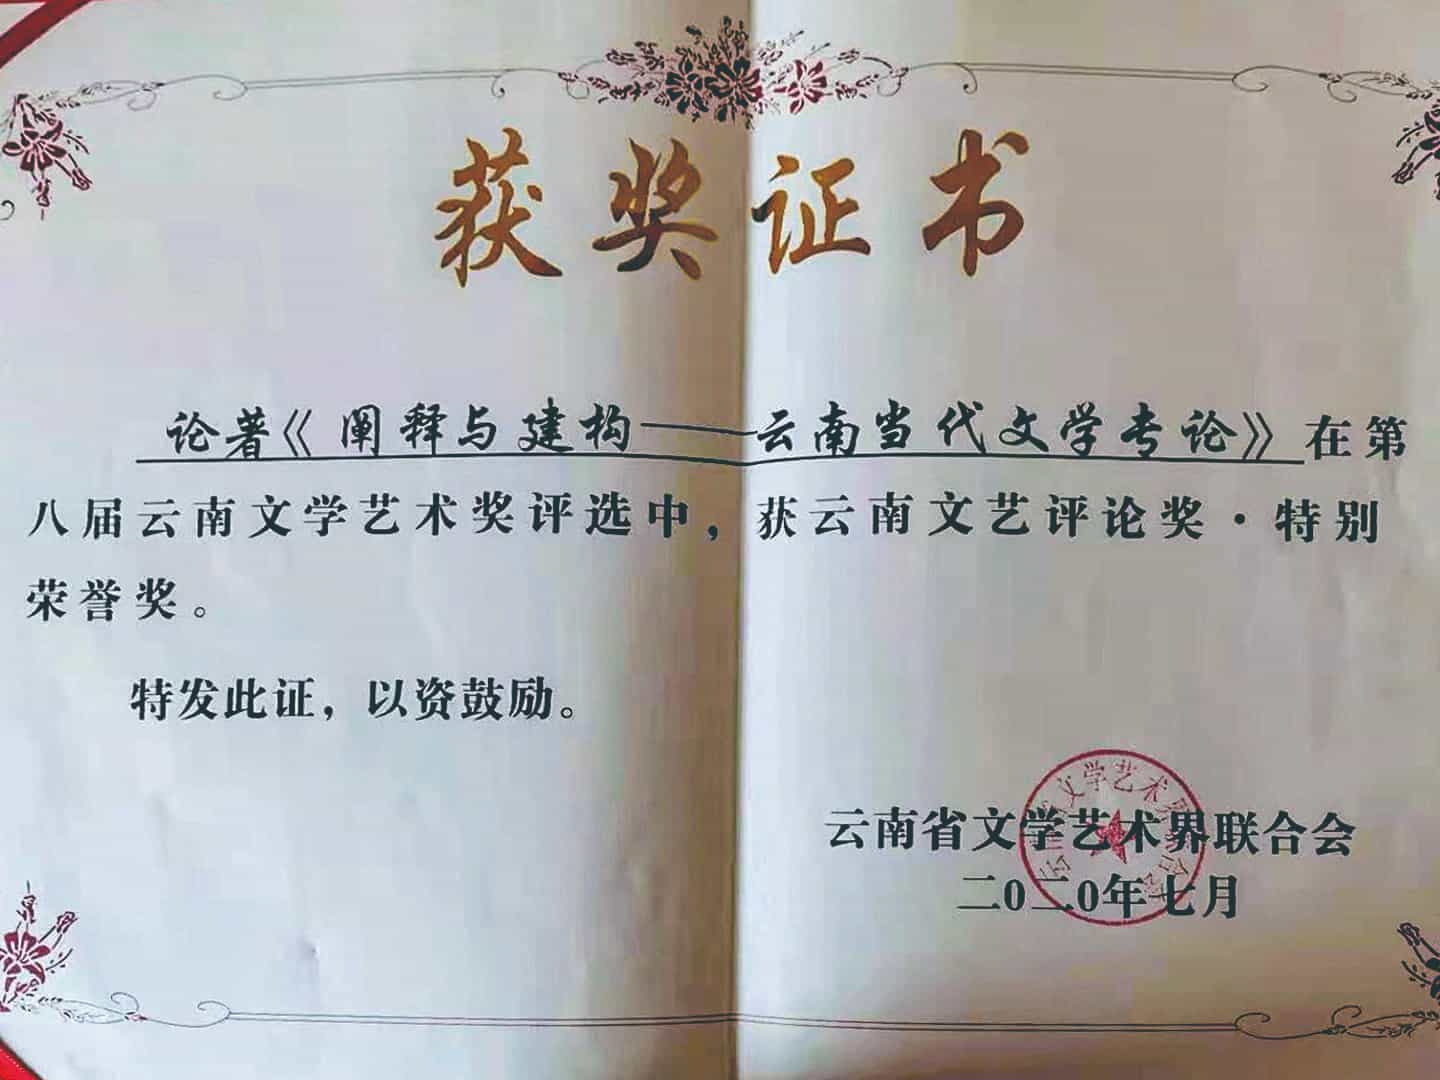 获奖证书
论著《阐释与建构——云南当代文学专论》在第
八届云南文学艺术奖评选中，获云南文艺评论奖·特别
荣誉奖。
特发此证，以资鼓励。
云南省文学艺术界联合会
二0二0年七月